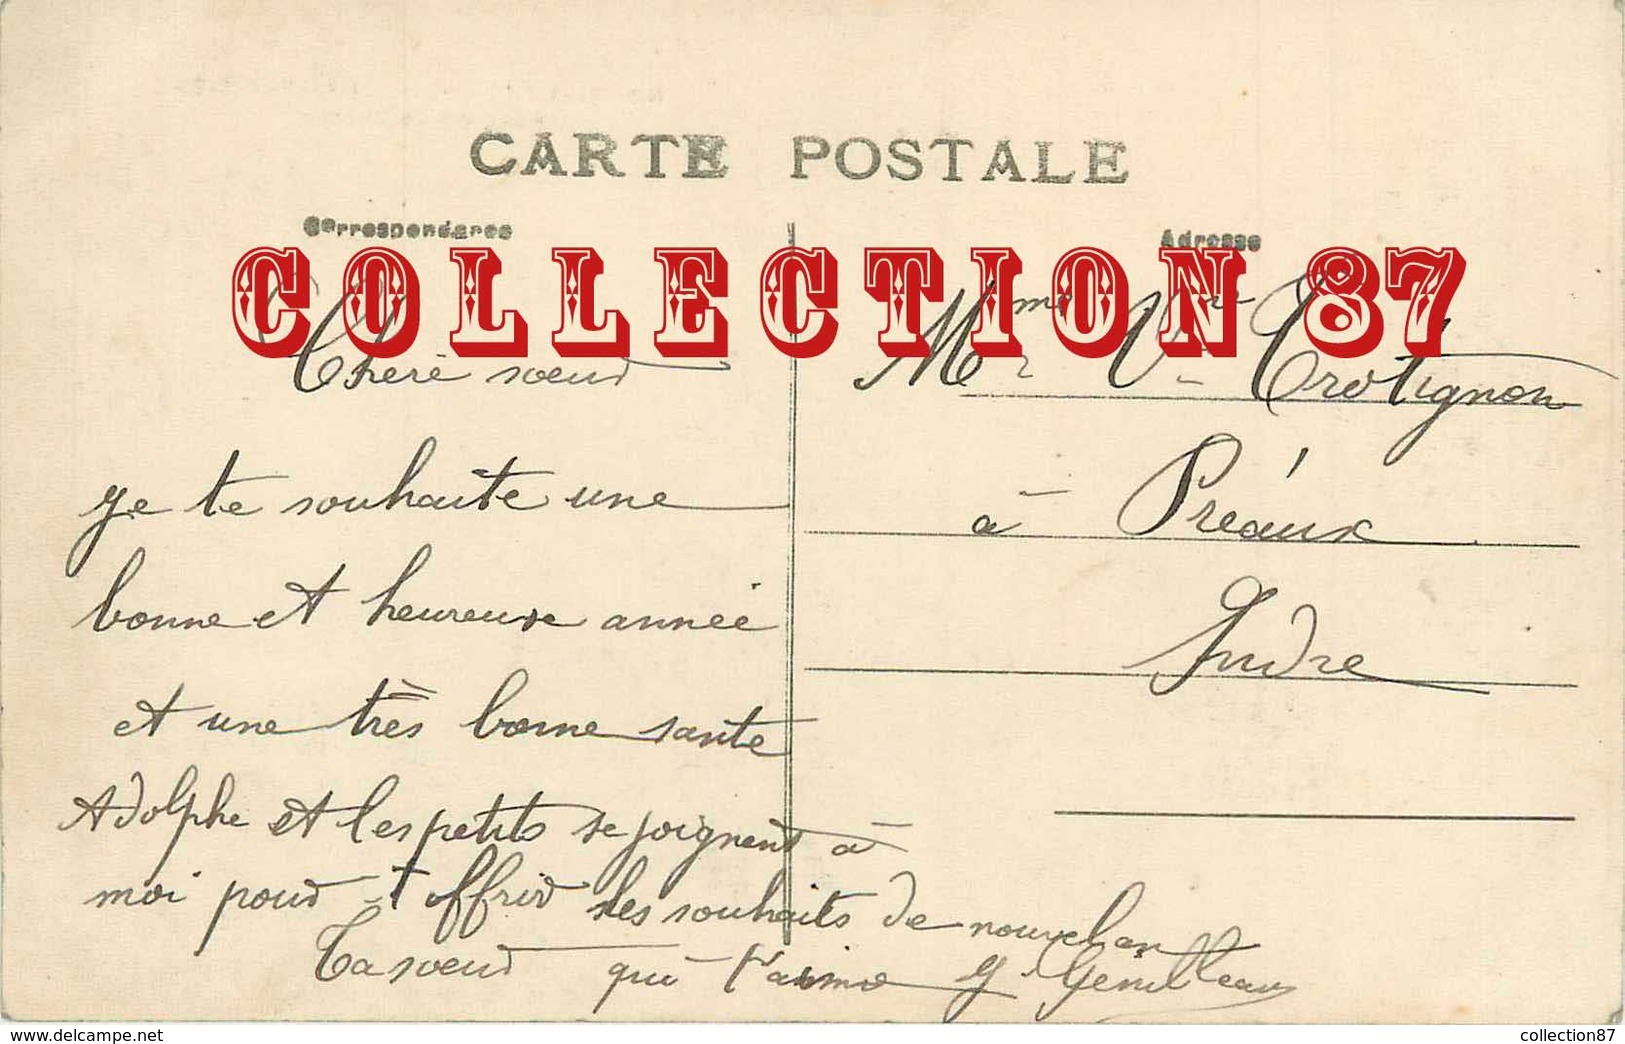 CARTE POSTALE
Correspondance
Adresse
COLLECTION 87
Chere soeur
je te souhaite une
bonne et heureuse année
et une très bonne sante
Adolphe et les petits se joignent à
moi pour t offrir les souhaits de nouvel an
Ta soeur qui t'aime
Mme Vve Trotignon
à Préaux
Indre
www.delcampe.net
collection87